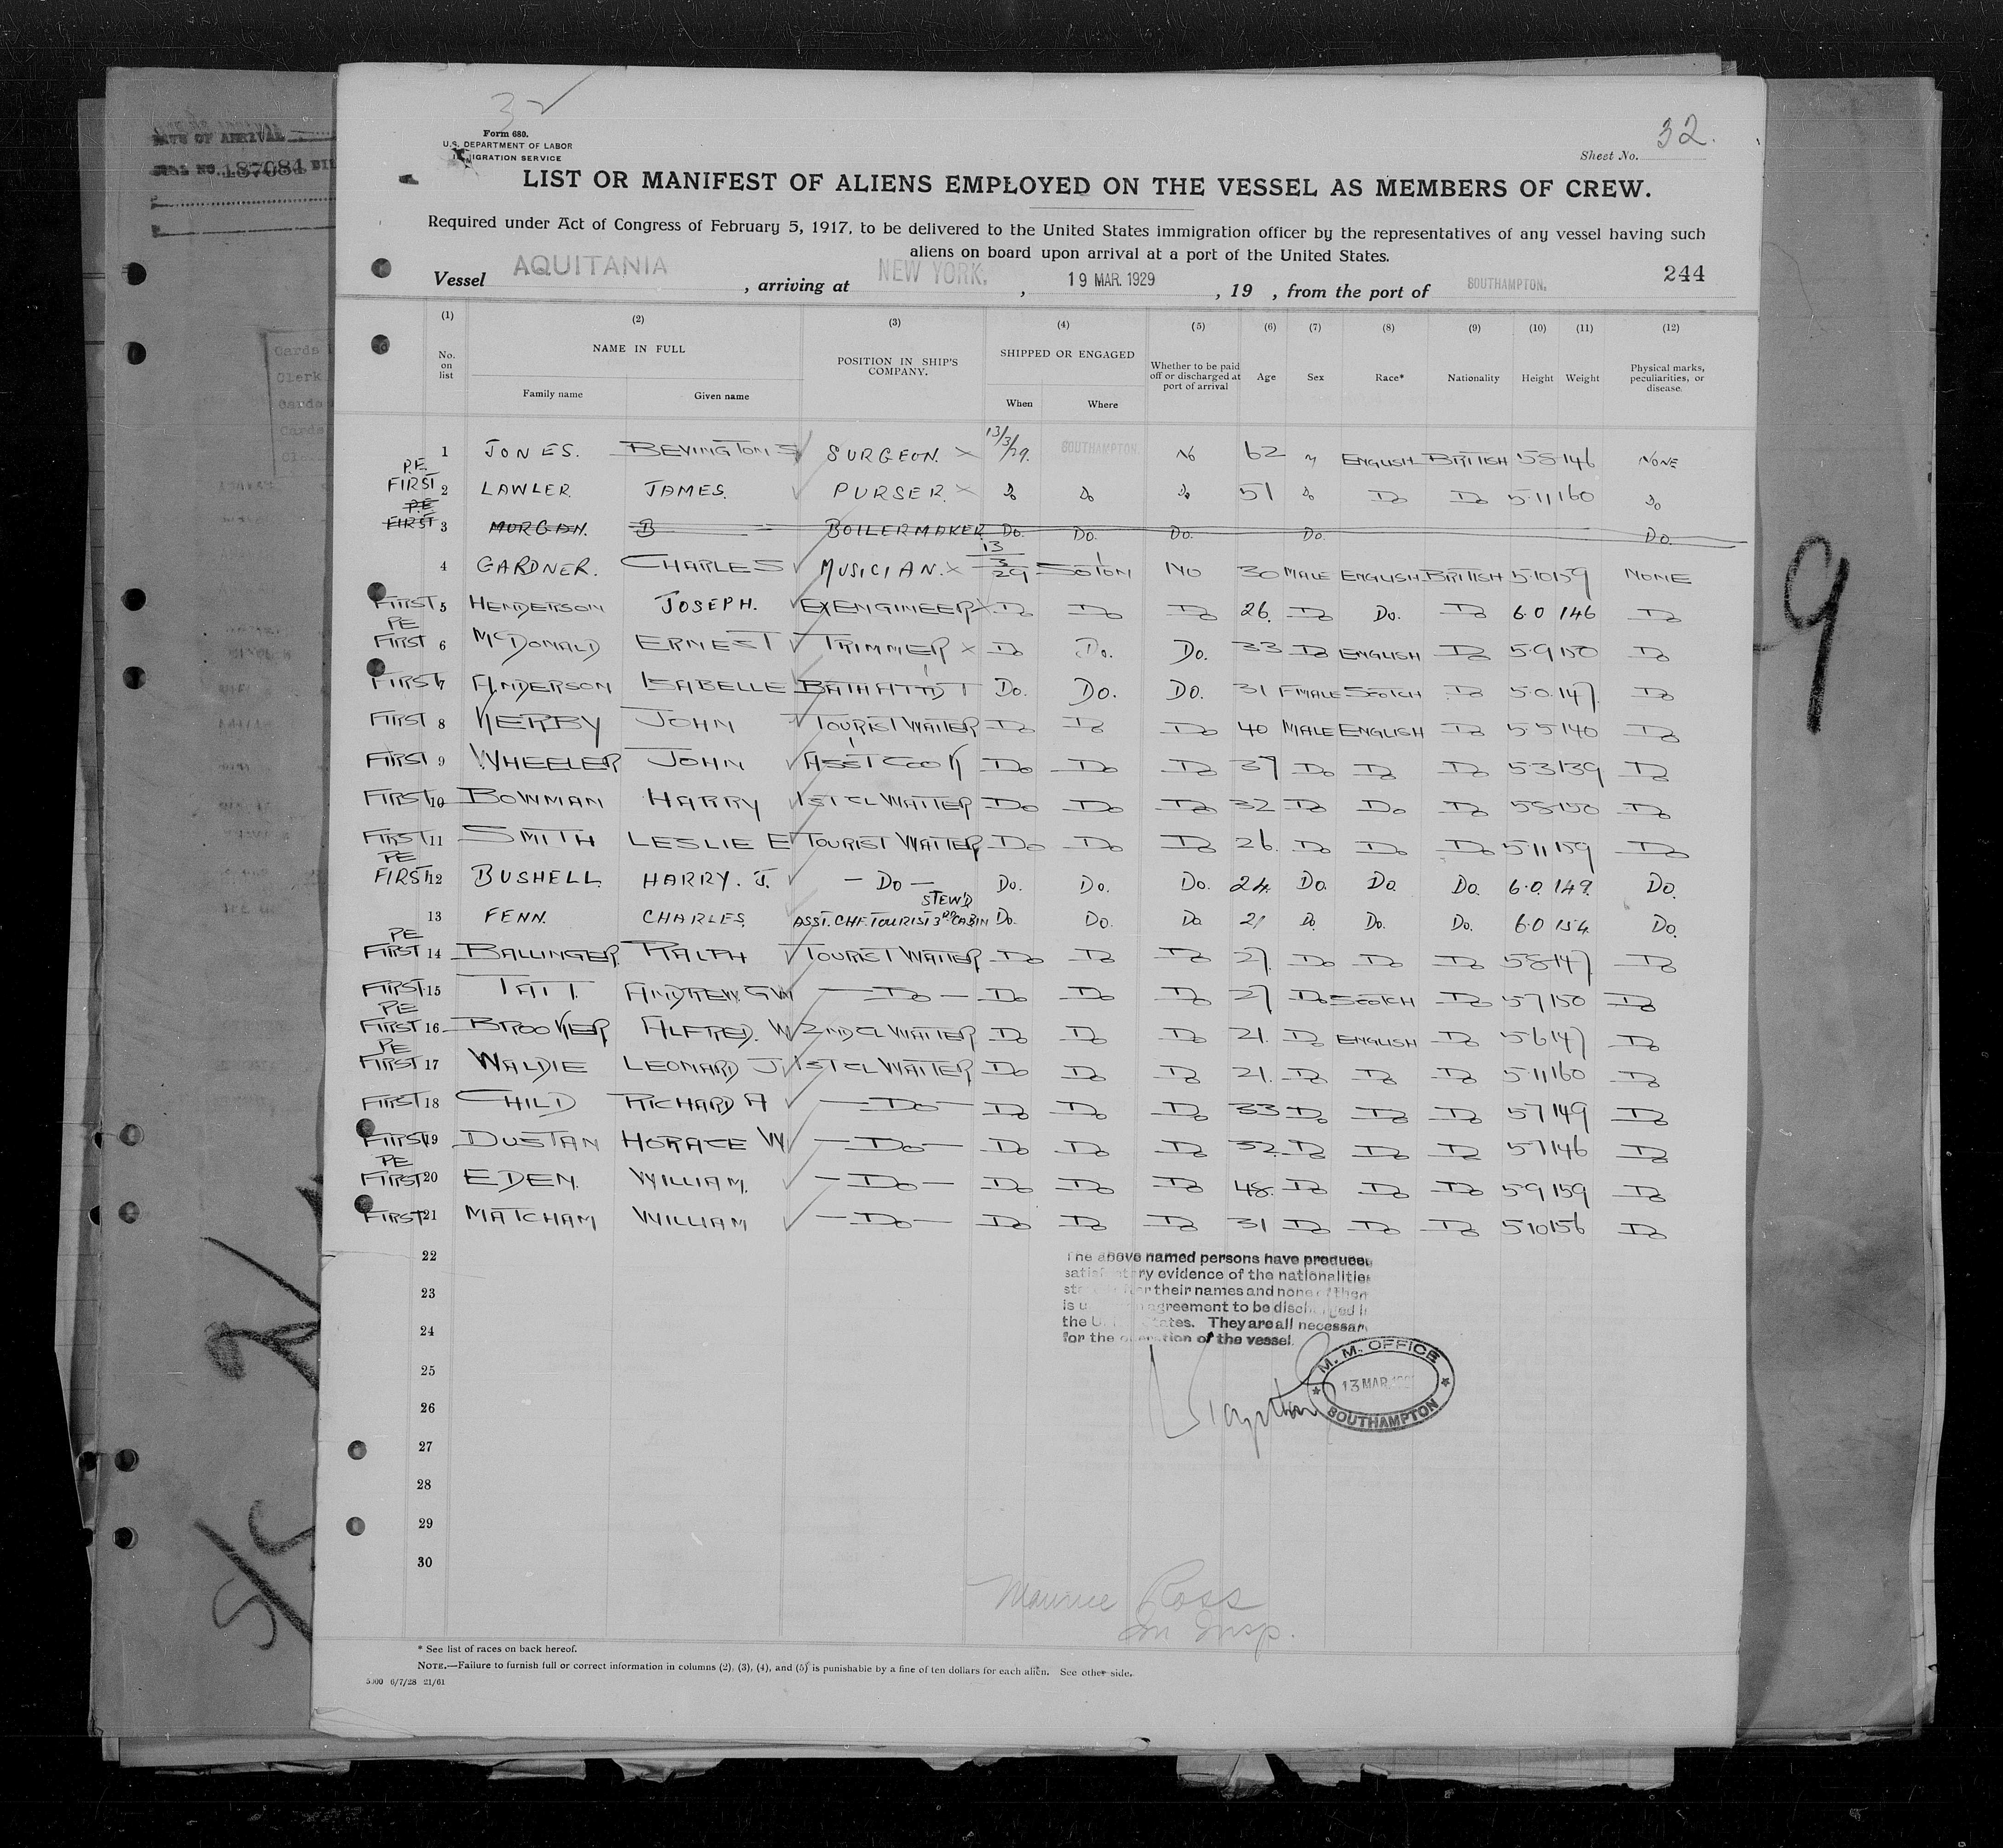 32
32.
Form 680.
U.S. DEPARTMENT OF LABOR
IMMIGRATION SERVICE
Sheet No.
DATE OF ARRIVAL
187084
LIST OR MANIFEST OF ALIENS EMPLOYED ON THE VESSEL AS MEMBERS OF CREW.
Required under Act of Congress of February 5, 1917, to be delivered to the United States immigration officer by the representatives of any vessel having such
aliens on board upon arrival at a port of the United States.
Vessel AQUITANIA, arriving at NEW YORK, 19 MAR. 1929, 19 , from the port of SOUTHAMPTON. 244
(1) (2) (3) (4) (5) (6) (7) (8) (9) (10) (11) (12)
No. on list NAME IN FULL POSITION IN SHIP'S COMPANY. SHIPPED OR ENGAGED Whether to be paid off or discharged at port of arrival Age Sex Race* Nationality Height Weight Physical marks, peculiarities, or disease.
Family name Given name When Where
1 JONES. BEVINGTON S SURGEON. X 13/3/29. SOUTHAMPTON. No 62 M ENGLISH BRITISH 5 8 146 NONE
P.E. FIRST 2 LAWLER. JAMES. PURSER. X Do Do Do 51 Do Do Do 5.11 160 Do
P.E FIRST 3 MORGAN. B BOILERMAKER Do. Do. Do. Do. Do.
4 GARDNER. CHARLES MUSICIAN. X 13/3/29 SOTON NO 30 MALE ENGLISH BRITISH 5.10 159 NONE
FIRST 5 HENDERSON JOSEPH. EX ENGINEER X Do Do Do 26. Do Do. Do 6.0 146 Do
PE FIRST 6 McDONALD ERNEST TRIMMER X Do Do. Do. 33 Do ENGLISH Do 5.9 150 Do
FIRST 7 ANDERSON ISABELLE BATH ATTDT Do. Do. Do. 31 FMALE SCOTCH Do 5.0. 147 Do
FIRST 8 KERBY JOHN TOURIST WAITER Do Do Do 40 MALE ENGLISH Do 5.5 140 Do
FIRST 9 WHEELER JOHN ASST COOK Do Do Do 37 Do Do Do 5 3 139 Do
FIRST 10 BOWMAN HARRY 1ST CL WAITER Do Do Do 32 Do Do Do 5 8 150 Do
FIRST 11 SMITH LESLIE E TOURIST WAITER Do Do Do 26. Do Do Do 5.11 159 Do
PE FIRST 12 BUSHELL. HARRY. J. — Do — Do. Do. Do. 24. Do. Do. Do. 6.0 149. Do.
13 FENN. CHARLES. ASST. CHF. TOURIST 3RD CABIN STEW'D Do. Do. Do 21 Do. Do. Do. 6.0 154. Do.
PE FIRST 14 BALLINGER. RALPH TOURIST WAITER Do Do Do 27. Do Do Do 5 8 147 Do
FIRST 15 TAIT. ANDREW. G W — Do — Do Do Do 27 Do SCOTCH Do 5 7 150 Do
PE FIRST 16 BROOKER ALFRED. W 2ND CL WAITER Do Do Do 21. Do ENGLISH Do 5.6 147 Do
PE FIRST 17 WALDIE LEONARD J. 1ST CL WAITER Do Do Do 21. Do Do Do 5.11 160 Do
FIRST 18 CHILD RICHARD A — Do — Do Do Do 33 Do Do Do 5 7 149 Do
FIRST 19 DUSTAN HORACE W — Do — Do Do Do 32. Do Do Do 5 7 146 Do
PE FIRST 20 EDEN. WILLIAM. — Do — Do Do Do 48. Do Do Do 5 9 159 Do
FIRST 21 MATCHAM WILLIAM — Do — Do Do Do 31 Do Do Do 5 10 156 Do
22
23
24
25
26
27
28
29
30
The above named persons have produced
satisfactory evidence of the nationalities
their names and none of them
is agreement to be discharged in
the United States. They are all necessary
for the operation of the vessel.
M. M. OFFICE
13 MAR.
SOUTHAMPTON
Maurice Ross
Im Insp.
* See list of races on back hereof.
NOTE.—Failure to furnish full or correct information in columns (2), (3), (4), and (5) is punishable by a fine of ten dollars for each alien. See other side.
5000 6/7/28 21/61
9